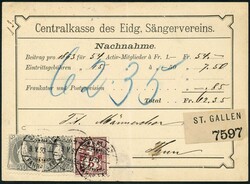 Centralkasse des Eidg. Sängervereins.
Nachnahme.
Beitrag pro 1893 für 54 Actív-Mitglieder à Fr. 1.— Fr. 54.—
Eintrittsgebühren 15 " 7.50
Frankatur und Postprovision " —.85
Total Fr. 62.35
62.35
Tit. Männerchor
Thun
ST. GALLEN
7597